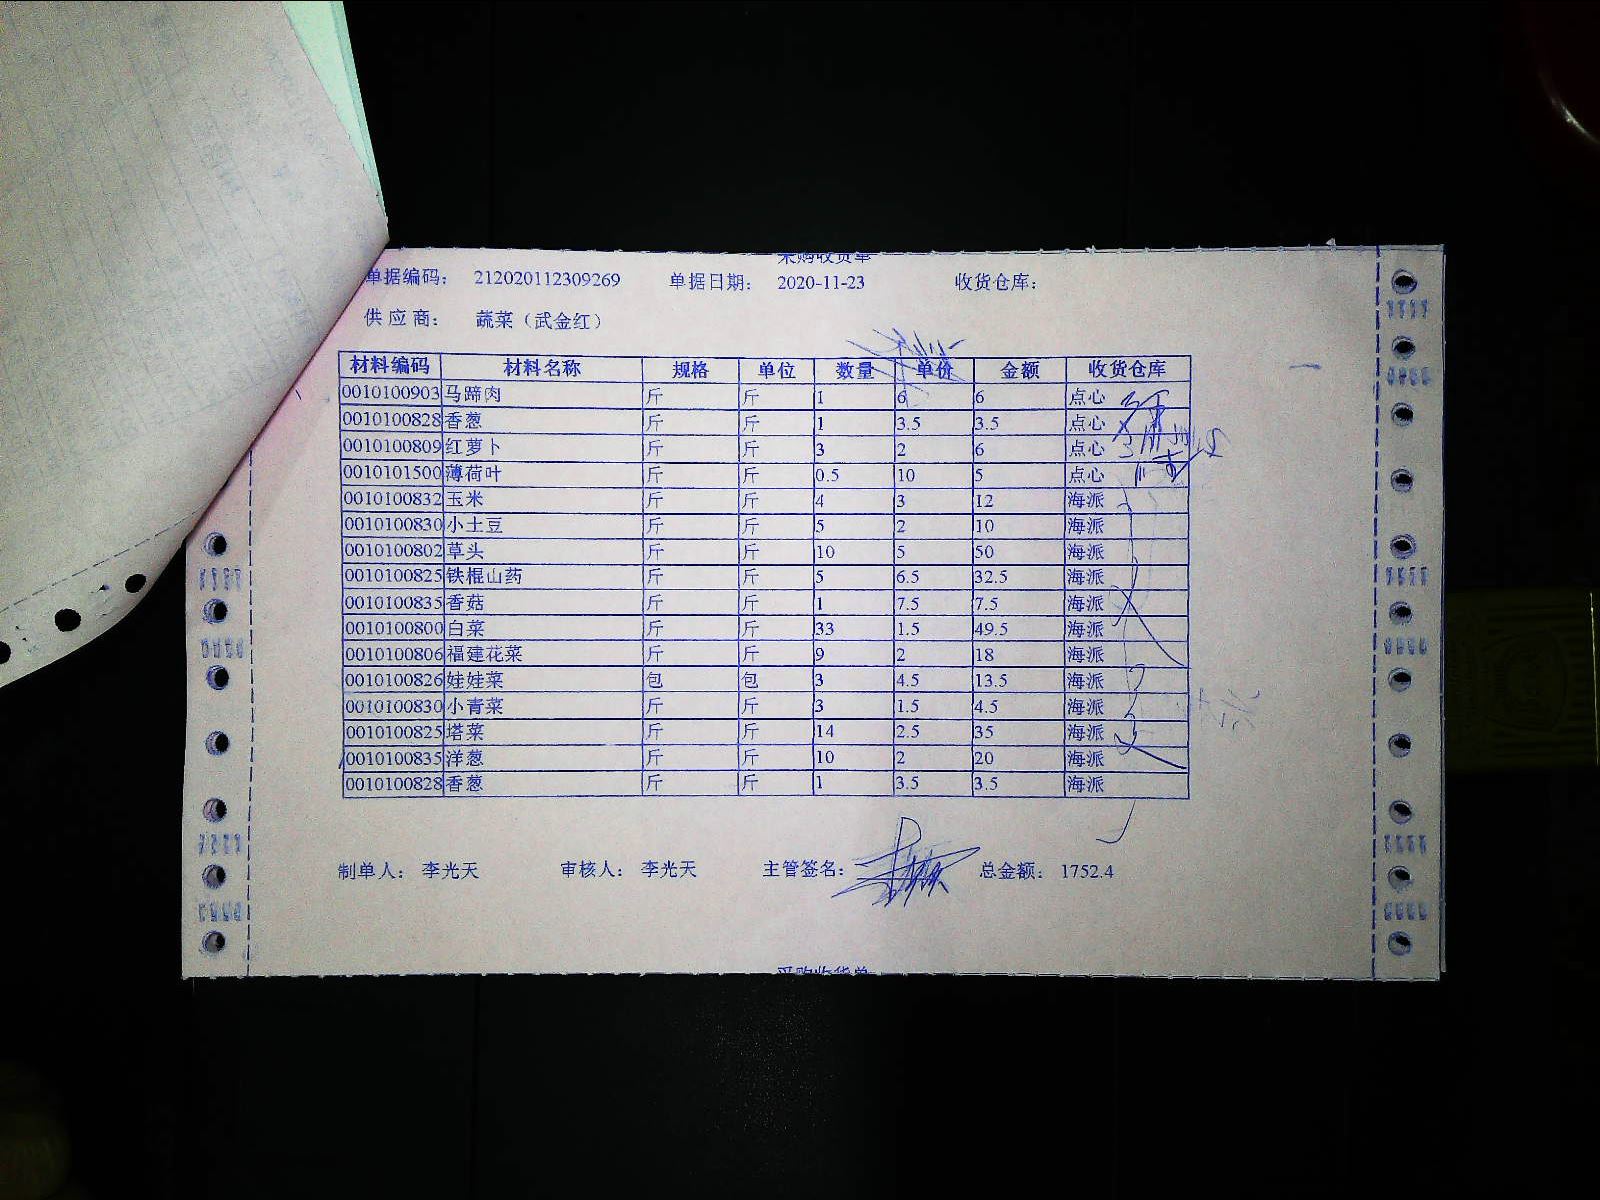 采购收货单
单据编码： 212020112309269 单据日期： 2020-11-23 收货仓库：
供应商： 蔬菜（武金红）
材料编码 材料名称 规格 单位 数量 单价 金额 收货仓库
0010100903 马蹄肉 斤 斤 1 6 6 点心
0010100828 香葱 斤 斤 1 3.5 3.5 点心
0010100809 红萝卜 斤 斤 3 2 6 点心
0010101500 薄荷叶 斤 斤 0.5 10 5 点心
0010100832 玉米 斤 斤 4 3 12 海派
0010100830 小土豆 斤 斤 5 2 10 海派
0010100802 草头 斤 斤 10 5 50 海派
0010100825 铁棍山药 斤 斤 5 6.5 32.5 海派
0010100835 香菇 斤 斤 1 7.5 7.5 海派
0010100800 白菜 斤 斤 33 1.5 49.5 海派
0010100806 福建花菜 斤 斤 9 2 18 海派
0010100826 娃娃菜 包 包 3 4.5 13.5 海派
0010100830 小青菜 斤 斤 3 1.5 4.5 海派
0010100825 塔菜 斤 斤 14 2.5 35 海派
0010100835 洋葱 斤 斤 10 2 20 海派
0010100828 香葱 斤 斤 1 3.5 3.5 海派
制单人： 李光天 审核人： 李光天 主管签名： 总金额： 1752.4
采购收货单